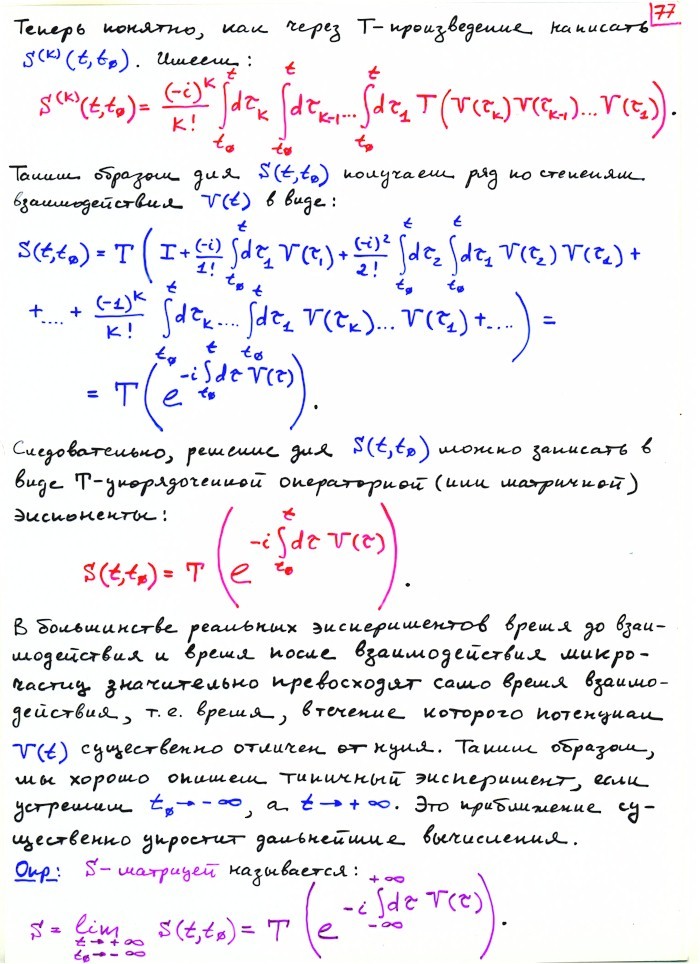 77
Теперь понятно, как через T-произведение написать
S⁽ᵏ⁾(t,t₀). Имеем:
S⁽ᵏ⁾(t,t₀) = (-i)ᵏ/k! ∫_{t₀}^{t} dτₖ ∫_{t₀}^{t} dτₖ₋₁... ∫_{t₀}^{t} dτ₁ T(V(τₖ)V(τₖ₋₁)... V(τ₁)).
Таким образом для S(t,t₀) получаем ряд по степеням
взаимодействия V(t) в виде:
S(t,t₀) = T( I + (-i)/1! ∫_{t₀}^{t} dτ₁ V(τ₁) + (-i)²/2! ∫_{t₀}^{t} dτ₂ ∫_{t₀}^{t} dτ₁ V(τ₂) V(τ₁) +
+.... + (-1)ᵏ/k! ∫_{t₀}^{t} dτₖ.... ∫_{t₀}^{t} dτ₁ V(τₖ)... V(τ₁) +.... ) =
= T( e^{-i ∫_{t₀}^{t} dτ V(τ)} ).
Следовательно, решение для S(t,t₀) можно записать в
виде T-упорядоченной операторной (или матричной)
экспоненты:
S(t,t₀) = T( e^{-i ∫_{t₀}^{t} dτ V(τ)} ).
В большинстве реальных экспериментов время до взаи-
модействия и время после взаимодействия микро-
частиц значительно превосходят само время взаимо-
действия, т.е. время, в течение которого потенциал
V(t) существенно отличен от нуля. Таким образом,
мы хорошо опишем типичный эксперимент, если
устремим t₀ → -∞, а t → +∞. Это приближение су-
щественно упростит дальнейшие вычисления.
Опр: S-матрицей называется:
S = lim_{t→+∞, t₀→-∞} S(t,t₀) = T( e^{-i ∫_{-∞}^{+∞} dτ V(τ)} ).